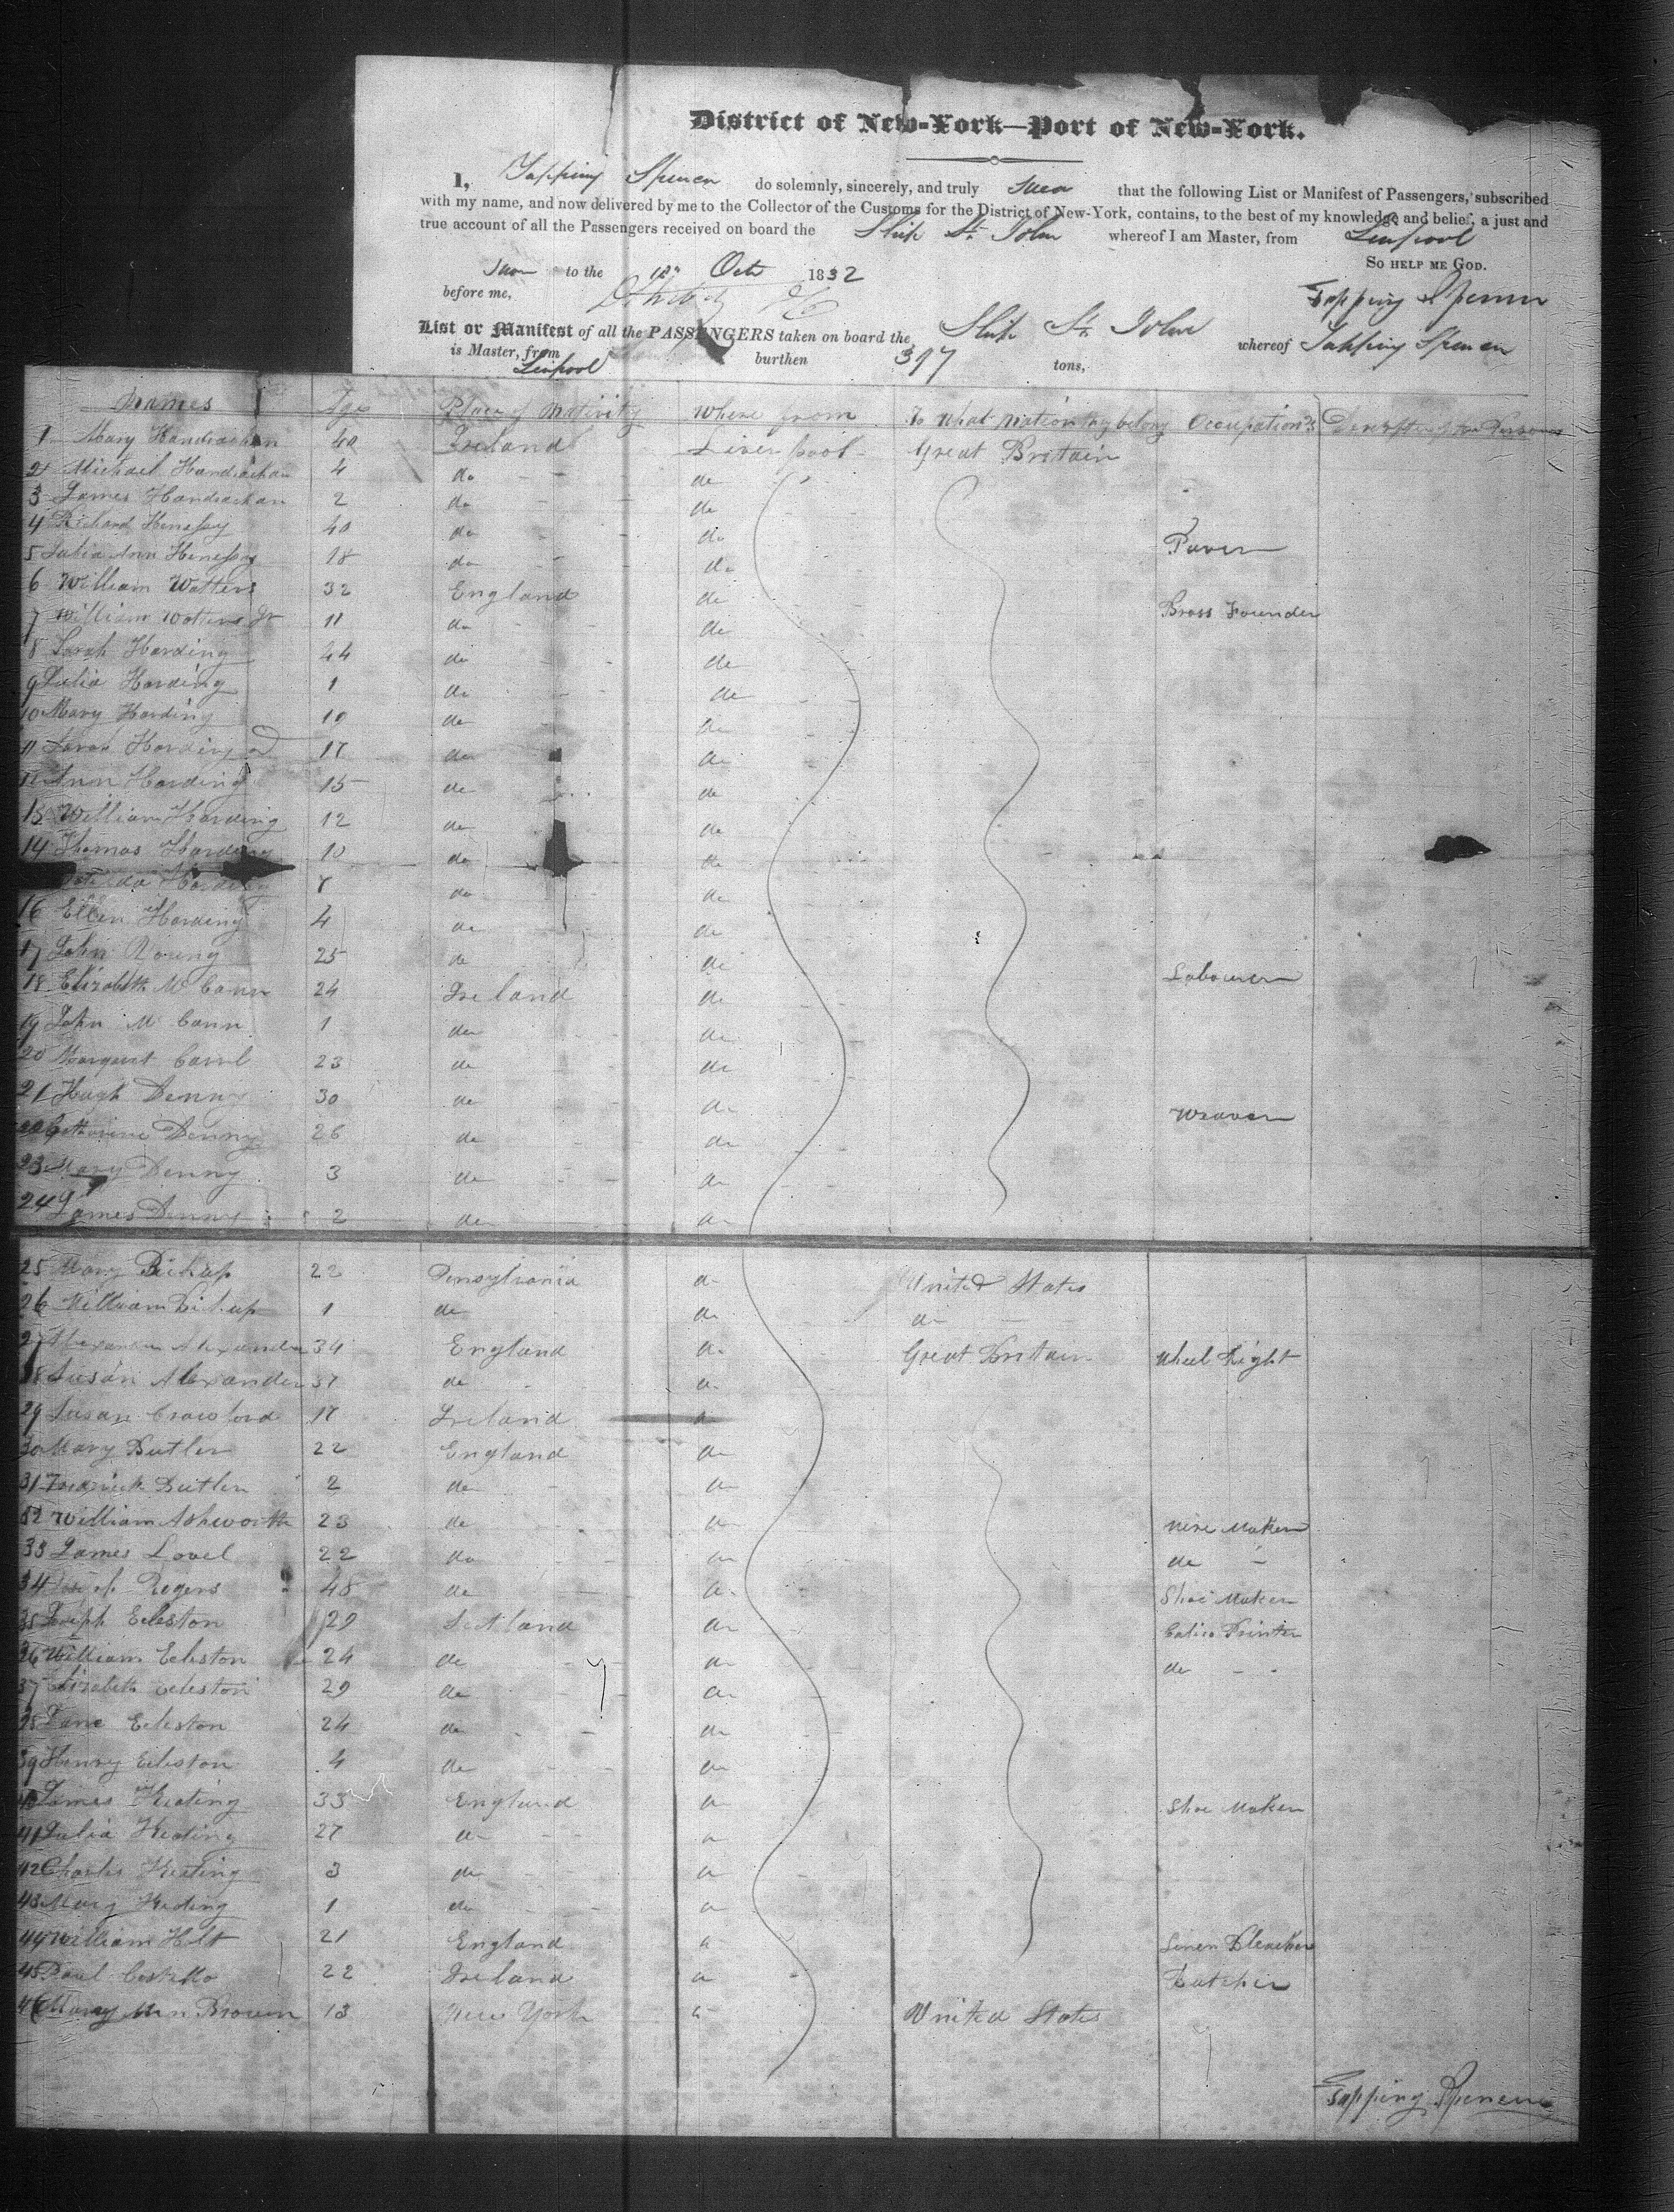 District of New-York—Port of New-York.
I, Tapping Spencer do solemnly, sincerely, and truly swear that the following List or Manifest of Passengers, subscribed
with my name, and now delivered by me to the Collector of the Customs for the District of New-York, contains, to the best of my knowledge and belief, a just and
true account of all the Passengers received on board the Ship St. John whereof I am Master, from Liverpool
So help me God.
Sworn to the 12th Oct 1832
before me, Tapping Spencer
List or Manifest of all the PASSENGERS taken on board the Ship St. John whereof Tapping Spencer
is Master, from Liverpool burthen 397 tons,
Names Age Place of Nativity Where from To what Nation they belong Occupations
1 Mary Handrachan 40 Ireland Liverpool Great Britain
2 Michael Handrachan 4 do do
3 James Handrachan 2 do do
4 Richard Henessy 40 do do Paver
5 Julia Ann Henessy 18 do do
6 William Watters 32 England do Brass Founder
7 William Watters Jr 11 do do
8 Sarah Harding 44 do do
9 Julia Harding 1 do do
10 Mary Harding 19 do do
11 Sarah Harding 2d 17 do do
12 Ann Harding 15 do do
13 William Harding 12 do do
14 Thomas Harding 10 do do
Harding 7 do do
16 Ellen Harding 4 do do
17 John Young 25 do do Labourer
18 Elizabeth McCann 24 Ireland do
19 John McCann 1 do do
20 Margaret Carrol 23 do do
21 Hugh Denny 30 do do Weaver
22 Catherine Denny 26 do do
23 Mary Denny 3 do do
24 James Denny 2 do do
25 Mary Bishop 22 Pensylvania do United States
26 William Bishop 1 do do do
27 Alexander 34 England do Great Brittain Wheel Right
28 Susan Alexander 37 do do
29 Susan Crawford 17 Ireland do
30 Mary Butler 22 England do
31 Frederick Butler 2 do do
32 William Ashworth 23 do do Wire Maker
33 James Lovel 22 do do do
34 Joseph Rogers 48 do do Shoe Maker
35 Joseph Ecleston 29 Scotland do Calico Printer
36 William Ecleston 24 do do do
37 Elizabeth Ecleston 29 do do
38 Jane Ecleston 24 do do
39 Henry Ecleston 4 do do
40 James Keating 33 England do Shoe Maker
41 Julia Keating 27 do do
42 Charles Keating 3 do do
43 Mary Keating 1 do do
44 William Holt 21 England do Linen Bleacher
45 Paul Costello 22 Ireland do Butcher
46 Mary Ann Brown 13 New York do United States
Tapping Spencer